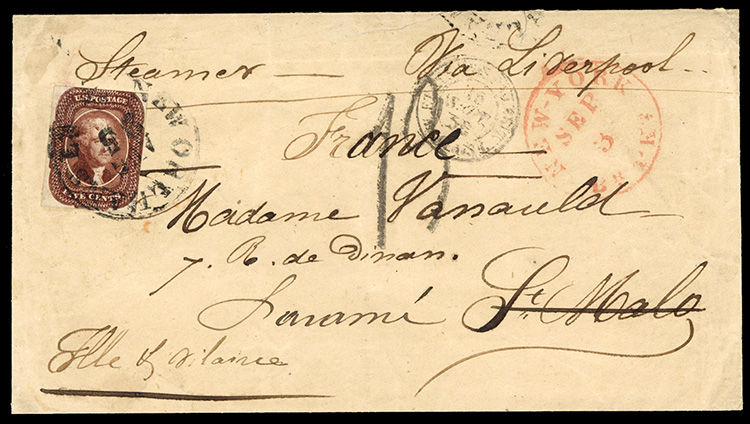 Steamer — Via Liverpool
U.S. POSTAGE
FIVE CENTS
NEW-YORK
SEP
3
BR. PKT.
France
Madame Vanauld
7. R. de Dinan.
Paramé St. Malo
Ille & Vilaine